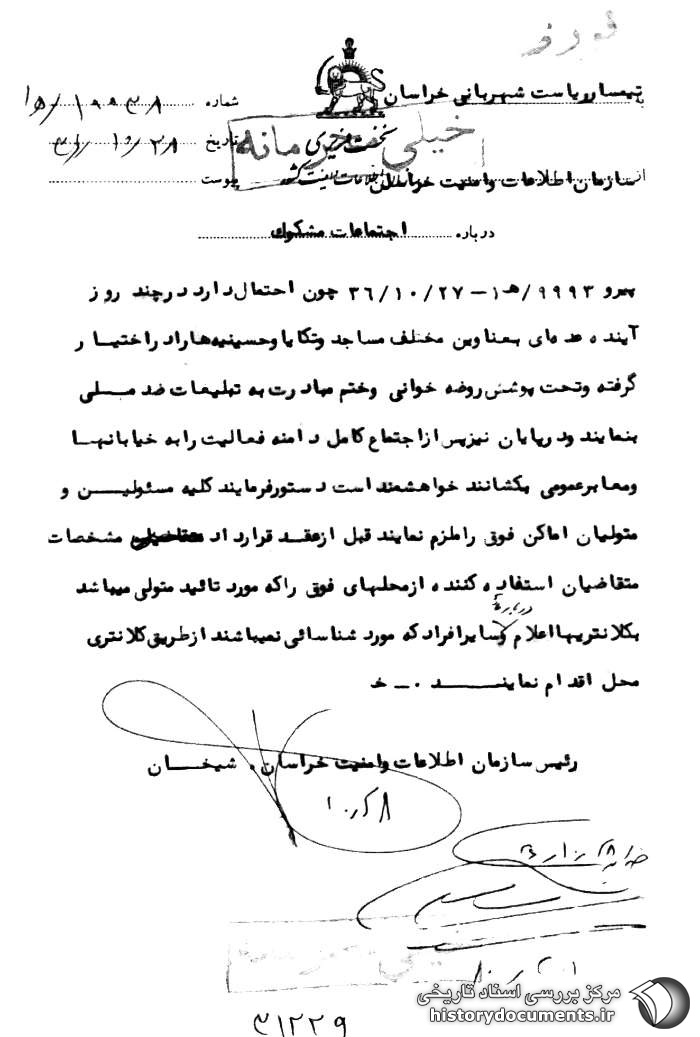 فوری
تیمسار ریاست شهربانی خراسان
شماره ۱۰۹۳۸/ه۱
نخست وزیری
خیلی محرمانه
تاریخ ۳۶/۱۰/۲۸
از سازمان اطلاعات و امنیت خراسان
پیوست
درباره اجتماعات مشکوک
پیرو ۹۹۹۳/ه۱ – ۳۶/۱۰/۲۷ چون احتمال دارد در چند روز
آینده عده‌ای بعناوین مختلف مساجد و تکایا و حسینیه‌ها را در اختیار
گرفته و تحت پوشش روضه خوانی و ختم مبادرت به تبلیغات ضد ملی
بنمایند و در پایان نیز پس از اجتماع کامل دامنه فعالیت را به خیابانها
و معابر عمومی بکشانند خواهشمند است دستور فرمایند کلیه مسئولین و
متولیان اماکن فوق را ملزم نمایند قبل از عقد قرارداد مشخصات
متقاضیان استفاده کننده از محلهای فوق را که مورد تائید متولی میباشد
بکلانتریها اعلام و درباره سایر افراد که مورد شناسائی نمیباشند از طریق کلانتری
محل اقدام نمایند . – خ
رئیس سازمان اطلاعات و امنیت خراسان . شیخان
۳۱۲۲۹
مرکز بررسی اسناد تاریخی
historydocuments.ir